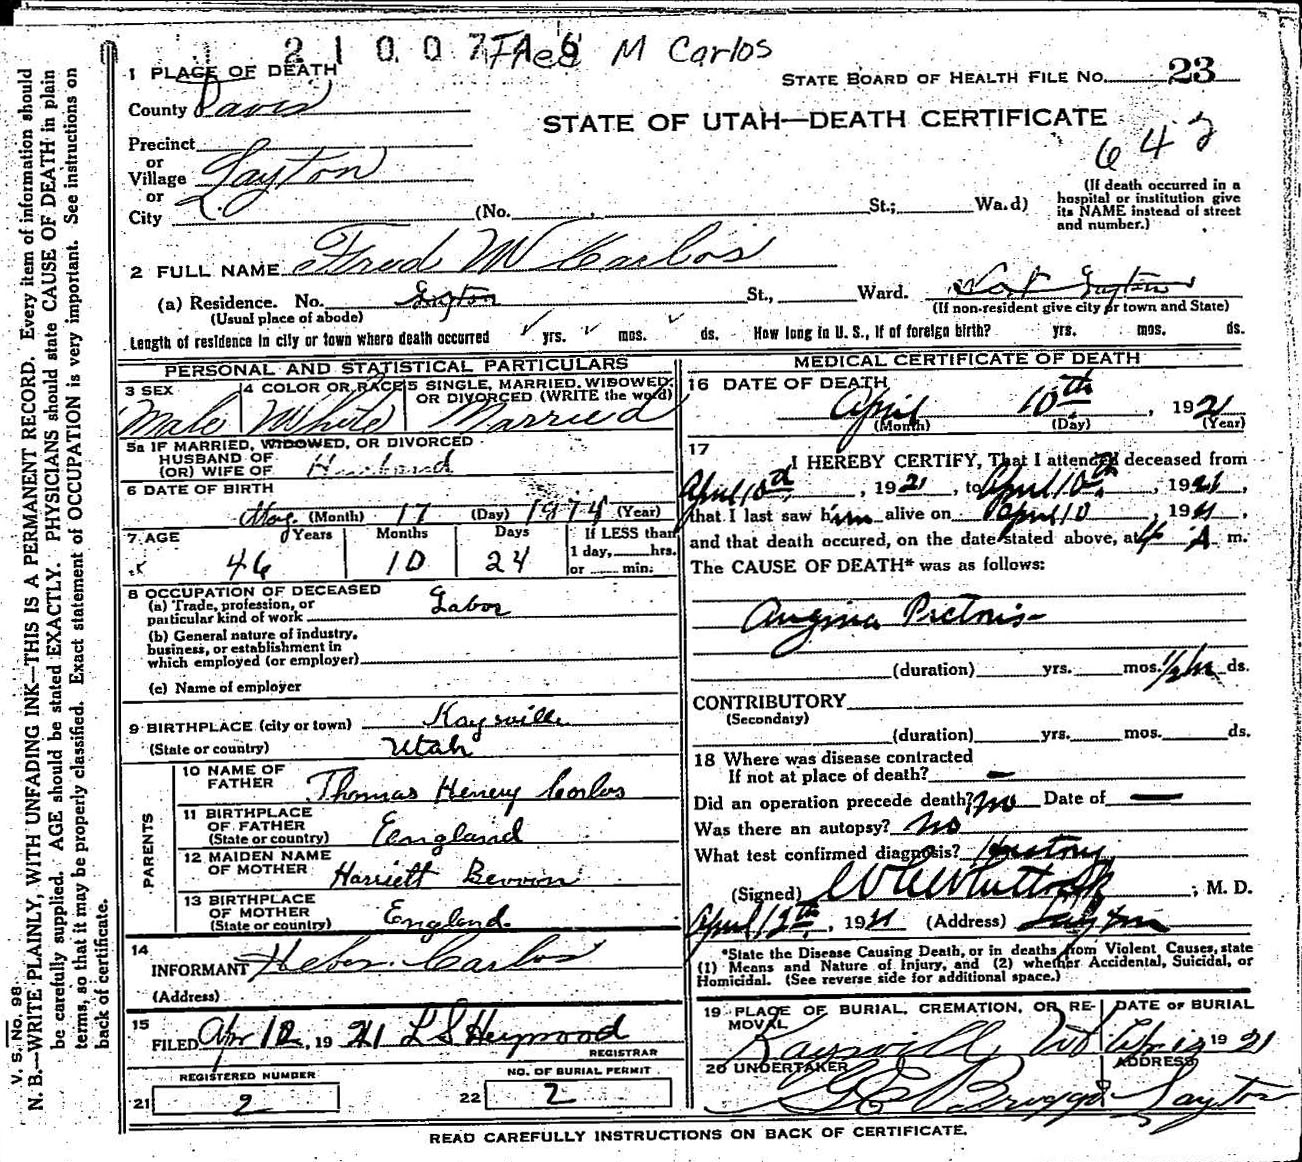 2 1 0 0 7 Fred M Carlos
1 PLACE OF DEATH
STATE BOARD OF HEALTH FILE No. 23
County Davis
STATE OF UTAH—DEATH CERTIFICATE
642
Precinct
or
Village Layton
or
City (No. , St.; Wa.d)
(If death occurred in a
hospital or institution give
its NAME instead of street
and number.)
2 FULL NAME Fred M Carlos
(a) Residence. No. Layton St., Ward. West Layton
(Usual place of abode) (If non-resident give city or town and State)
Length of residence in city or town where death occurred yrs. mos. ds. How long in U. S., if of foreign birth? yrs. mos. ds.
PERSONAL AND STATISTICAL PARTICULARS
3 SEX 4 COLOR OR RACE 5 SINGLE, MARRIED, WIDOWED,
OR DIVORCED (WRITE the word)
Male White Married
5a IF MARRIED, WIDOWED, OR DIVORCED
HUSBAND OF
(OR) WIFE OF Husband
6 DATE OF BIRTH
(Month) 17 (Day) 1874 (Year)
7 AGE Years Months Days If LESS than
1 day, hrs.
or min.
46 10 24
8 OCCUPATION OF DECEASED
(a) Trade, profession, or
particular kind of work Labor
(b) General nature of industry,
business, or establishment in
which employed (or employer)
(c) Name of employer
9 BIRTHPLACE (city or town) Kaysville
(State or country) Utah
PARENTS
10 NAME OF
FATHER Thomas Henery Carlos
11 BIRTHPLACE
OF FATHER
(State or country) England
12 MAIDEN NAME
OF MOTHER Harriett
13 BIRTHPLACE
OF MOTHER
(State or country) England
14
INFORMANT Heber Carlos
(Address)
15
FILED Apr 12, 1921 L S Heywood
REGISTRAR
REGISTERED NUMBER NO. OF BURIAL PERMIT
21 2 22 2
MEDICAL CERTIFICATE OF DEATH
16 DATE OF DEATH
April 10th, 1921
(Month) (Day) (Year)
17
I HEREBY CERTIFY, That I attended deceased from
April 10th, 1921, to April 10th, 1921,
that I last saw him alive on April 10, 1921,
and that death occured, on the date stated above, at 4 A m.
The CAUSE OF DEATH* was as follows:
Angina Pectoris
(duration) yrs. mos. 1/2 hr ds.
CONTRIBUTORY
(Secondary)
(duration) yrs. mos. ds.
18 Where was disease contracted
If not at place of death? —
Did an operation precede death? no Date of —
Was there an autopsy? no
What test confirmed diagnosis? History
(Signed) ; M. D.
April 12th, 1921 (Address) Layton
*State the Disease Causing Death, or in deaths from Violent Causes, state
(1) Means and Nature of Injury, and (2) whether Accidental, Suicidal, or
Homicidal. (See reverse side for additional space.)
19 PLACE OF BURIAL, CREMATION, OR RE-
MOVAL DATE OF BURIAL
Kaysville Ut 1921
20 UNDERTAKER ADDRESS
G E Briggs Layton
READ CAREFULLY INSTRUCTIONS ON BACK OF CERTIFICATE.
V. S. No. 98
N. B.—WRITE PLAINLY, WITH UNFADING INK—THIS IS A PERMANENT RECORD. Every item of information should
be carefully supplied. AGE should be stated EXACTLY. PHYSICIANS should state CAUSE OF DEATH in plain
terms, so that it may be properly classified. Exact statement of OCCUPATION is very important. See instructions on
back of certificate.